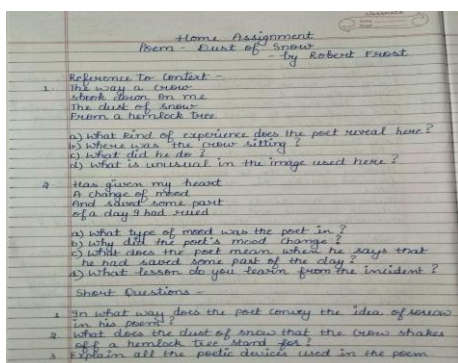 Home Assignment
Poem - Dust of Snow
- by Robert Frost
Reference to Context -
1. The way a crow
shook down on me
The dust of snow
From a hemlock tree
a) What kind of experience does the poet reveal here?
b) Where was the crow sitting?
c) What did he do?
d) What is unusual in the image used here?
2. Has given my heart
A change of mood
And saved some part
of a day I had rued.
a) What type of mood was the poet in?
b) Why did the poet's mood change?
c) What does the poet mean when he says that
he had saved some part of the day?
d) What lesson do you learn from the incident?
Short Questions -
1 In what way does the poet convey the idea of sorrow
in his poem?
2 What does the dust of snow that the crow shakes
off a hemlock tree stand for?
3 Explain all the poetic devices used in the poem